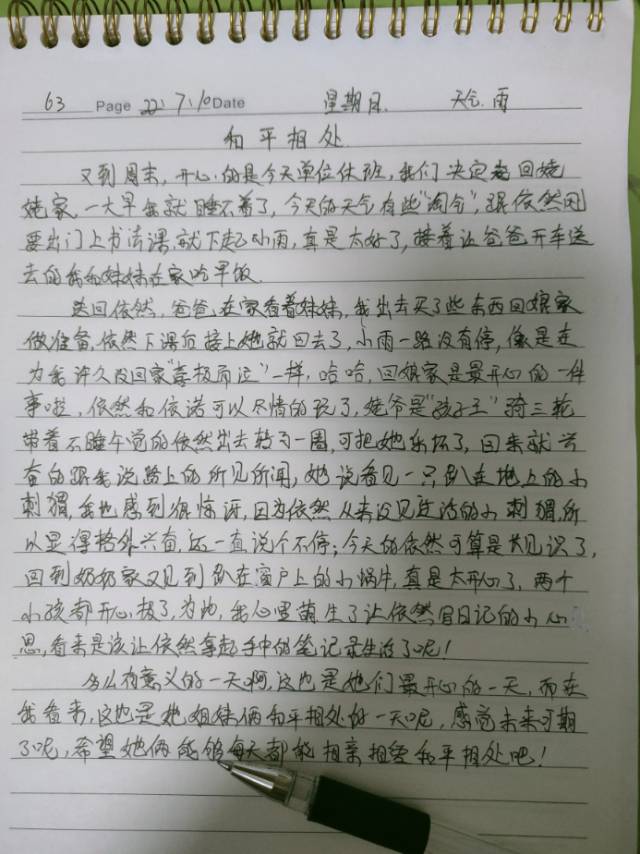 63 Page 22.7.10 Date 星期日. 天气.雨
和平相处.
又到周末,开心的是今天单位休班,我们决定起回姥
姥家,一大早我就睡不着了,今天的天气有些"淘气",跟依然刚
要出门上书法课就下起小雨,真是太好了,接着让爸爸开车送
去的我和妹妹在家吃早饭.
送回依然,爸爸在家看着妹妹,我出去买了些东西回娘家
做准备,依然下课后接上她就回去了,小雨一路没有停,像是在
为我许久没回家"喜极而泣"一样,哈哈,回娘家是最开心的一件
事啦,依然和依诺可以尽情的玩了,姥爷是"孩子王"骑三轮
带着不睡午觉的依然出去转了一圈,可把她乐坏了,回来就兴
奋的跟我说路上的所见所闻,她说看见一只趴在地上的小
刺猬,我也感到很惊讶,因为依然从来没见过活的小刺猬,所
以显得格外兴奋,还一直说个不停;今天的依然可算是长见识了,
回到奶奶家又见到趴在窗户上的小蜗牛,真是太开心了,两个
小孩都开心极了,为此,我心里萌生了让依然写日记的小心
思,看来是该让依然拿起手中的笔记录生活了呢!
多么有意义的一天啊,这也是她们最开心的一天,而在
我看来,这也是她姐妹俩和平相处的一天呢,感觉未来可期
了呢,希望她俩能够每天都能相亲相爱和平相处吧!